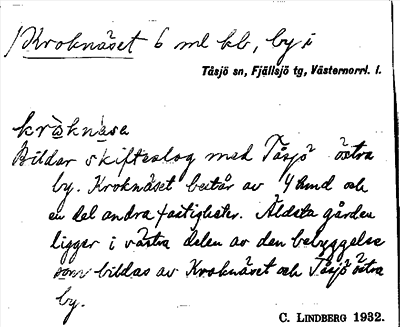 Kroknäset 6 ml kb, by i
Tåsjö sn, Fjällsjö tg, Västernorrl. l.
kròknàsa
Bildar skifteslag med Tåsjö östra
by. Kroknäset består av 4 hmd och
en del andra fastigheter. Äldsta gården
ligger i västra delen av den bebyggelse
som bildas av Kroknäset och Tåsjö östra
by.
C. LINDBERG 1932.